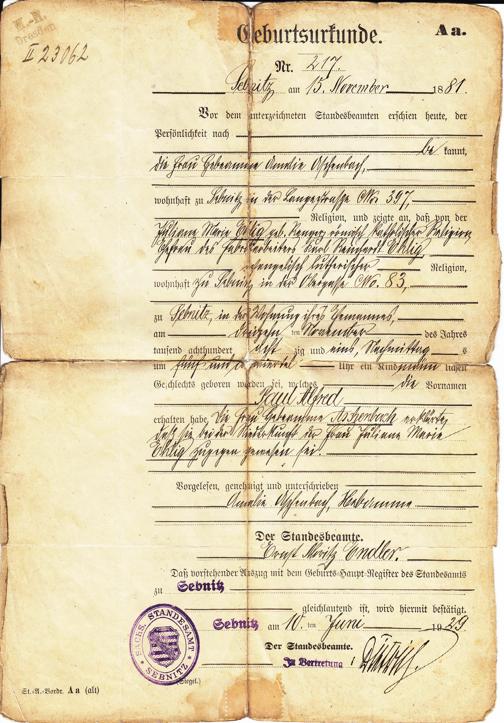 K.-A.
Dresden
II 23062
Geburtsurkunde.
Aa.
Nr. 217.
Sebnitz, am 15. November 1881.
Vor dem unterzeichneten Standesbeamten erschien heute, der
Persönlichkeit nach
be kannt,
die Frau Hebeamme Amalie Aschenbach,
wohnhaft zu Sebnitz in der Langestrasse No. 397,
Religion, und zeigte an, daß von der
Juliane Marie Ehlig geb. römisch katholischer Religion,
Ehefrau des Fabrikarbeiters Karl Reinhardt Ehlig
evangelisch lutherischer Religion,
wohnhaft zu Sebnitz in der Obergasse No. 83,
zu Sebnitz, in der Wohnung ihres Ehemannes,
am dreizehnten November des Jahres
tausend achthundert acht zig und eins, Nachmittag s
um fünf und Uhr ein Kind männ lichen
Geschlechts geboren worden sei, welches die Vornamen
Paul Alfred
erhalten habe. Die Frau Hebeamme Aschenbach erklärte,
daß sie bei der Niederkunft der Frau Juliane Marie
Ehlig zugegen gewesen sei.
Vorgelesen, genehmigt und unterschrieben
Amalie Aschenbach, Hebamme
Der Standesbeamte.
Ernst Moritz Endler.
Daß vorstehender Auszug mit dem Geburts-Haupt-Register des Standesamts
zu Sebnitz
gleichlautend ist, wird hiermit bestätigt.
Sebnitz am 10. ten Juni 1929.
Der Standesbeamte.
In Vertretung:
SÄCHS. STANDESAMT
SEBNITZ
(Siegel.)
St.-A.-Vordr. Aa (alt)